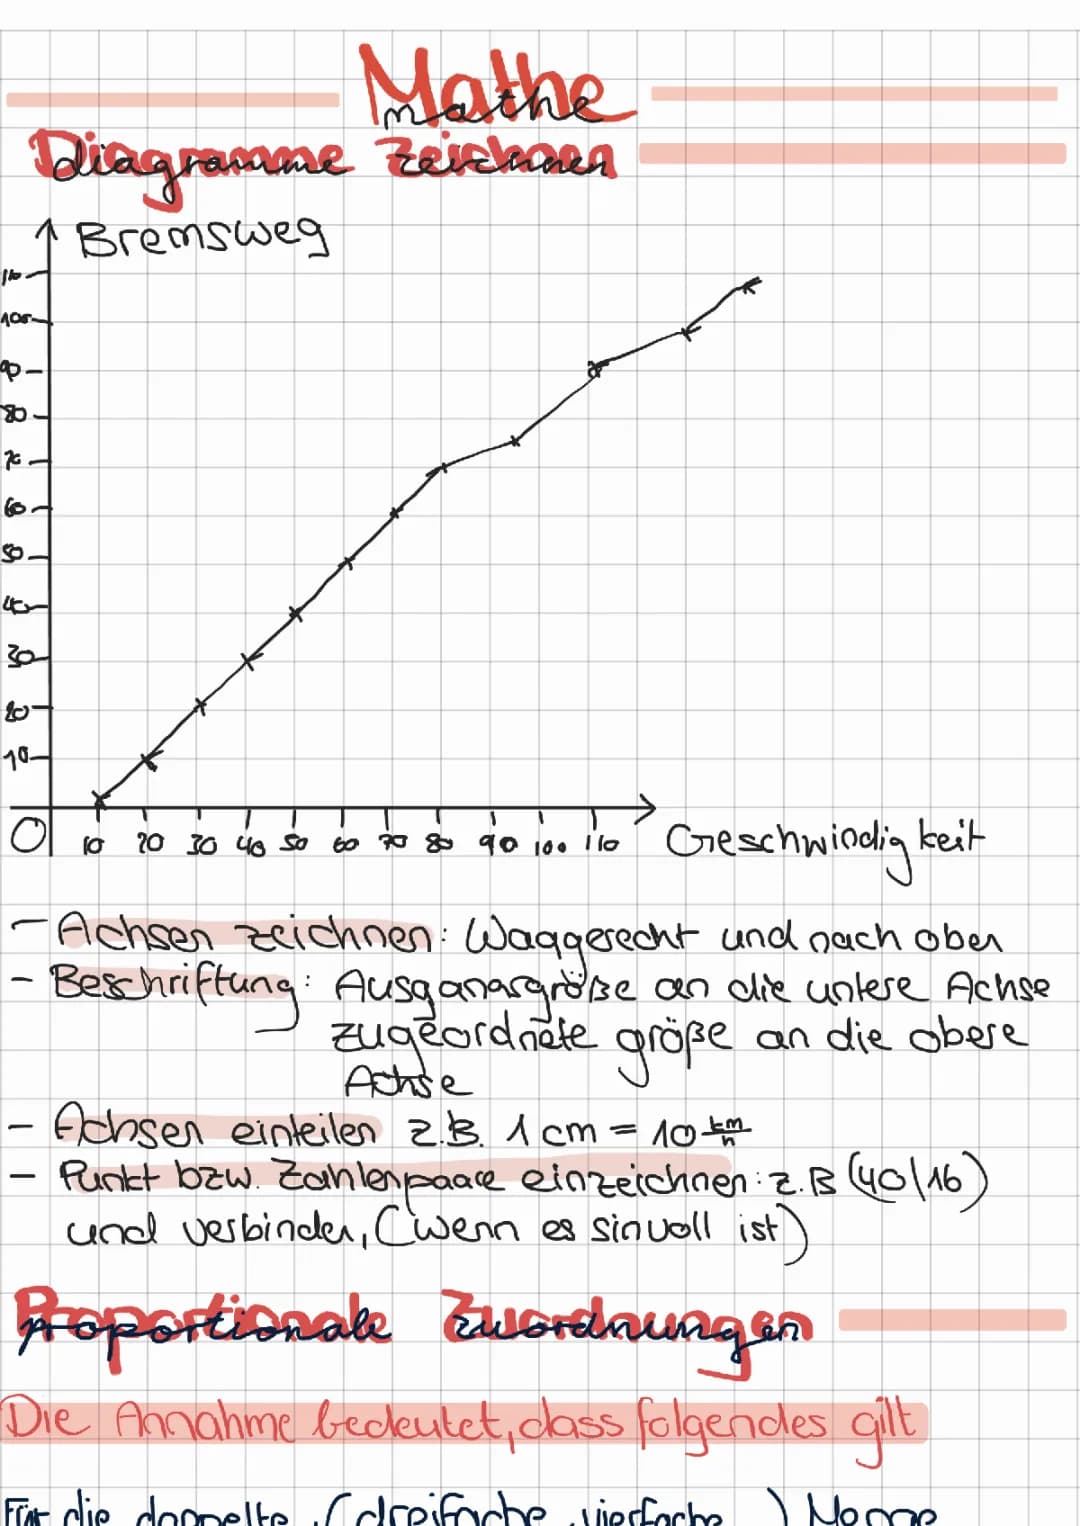 Mathe
mathe
Diagramme zeichnen
Bremsweg
110
100
90
80
70
60
50
40
30
20
10
0 10 20 30 40 50 60 70 80 90 100 110 Geschwindigkeit
- Achsen zeichnen: Waagerecht und nach oben
- Beschriftung: Ausgangsgröße an die untere Achse
zugeordnete größe an die obere
Achse
- Achsen einteilen z.B. 1 cm = 10 km/h
- Punkt bzw. Zahlenpaare einzeichnen: z.B (40|16)
und verbinden, (wenn es sinvoll ist)
Proportionale Zuordnungen
Die Annahme bedeutet, dass folgendes gilt
Für die doppelte, (dreifache, vierfache...) Menge